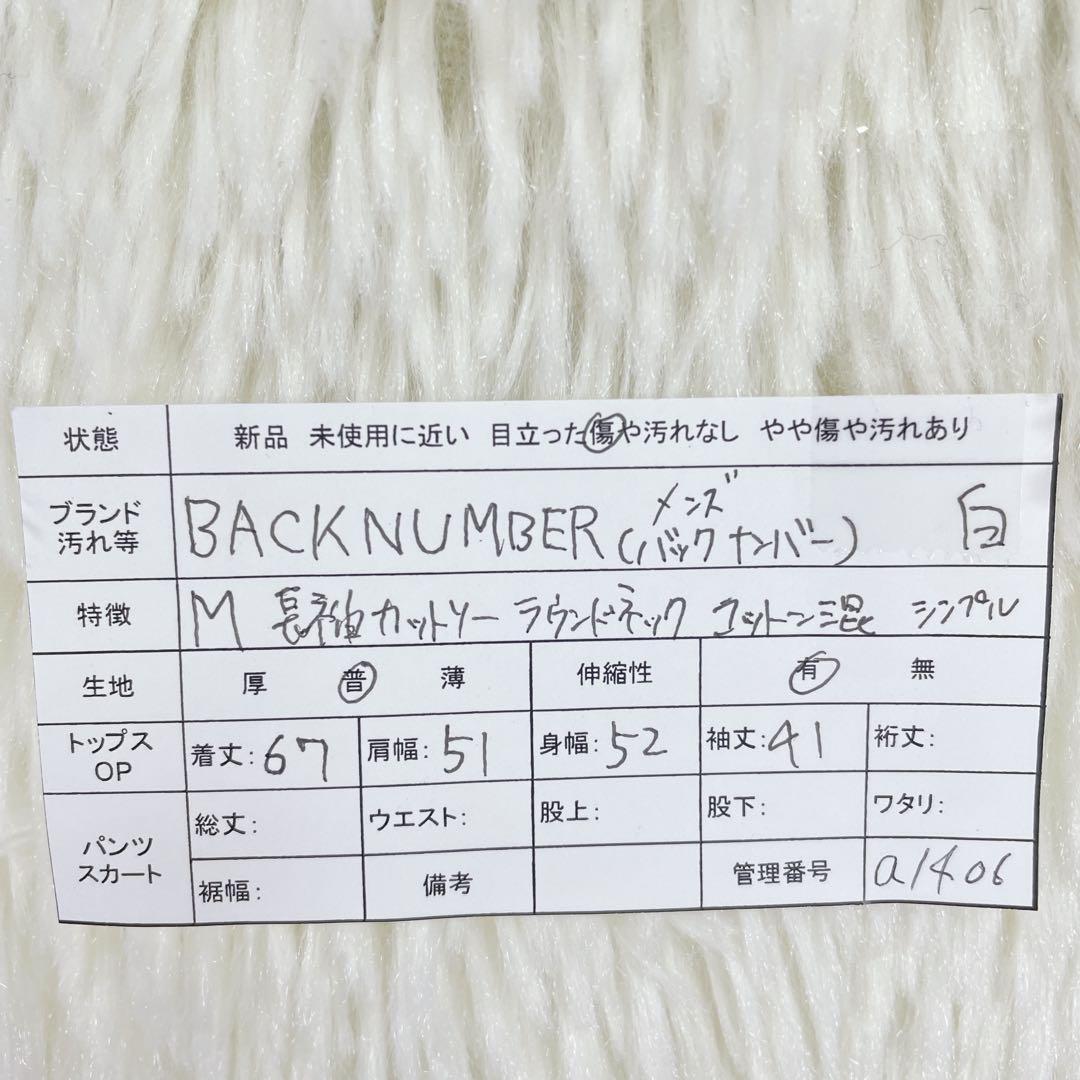 状態 新品 未使用に近い 目立った傷や汚れなし やや傷や汚れあり
ブランド 汚れ等 BACK NUMBER (バックナンバー) メンズ 白
特徴 M 長袖カットソー ラウンドネック コットン混 シンプル
生地 厚 普 薄 伸縮性 有 無
トップス OP 着丈:67 肩幅:51 身幅:52 袖丈:41 裄丈:
パンツ スカート 総丈: ウエスト: 股上: 股下: ワタリ:
裾幅: 備考 管理番号 a1406